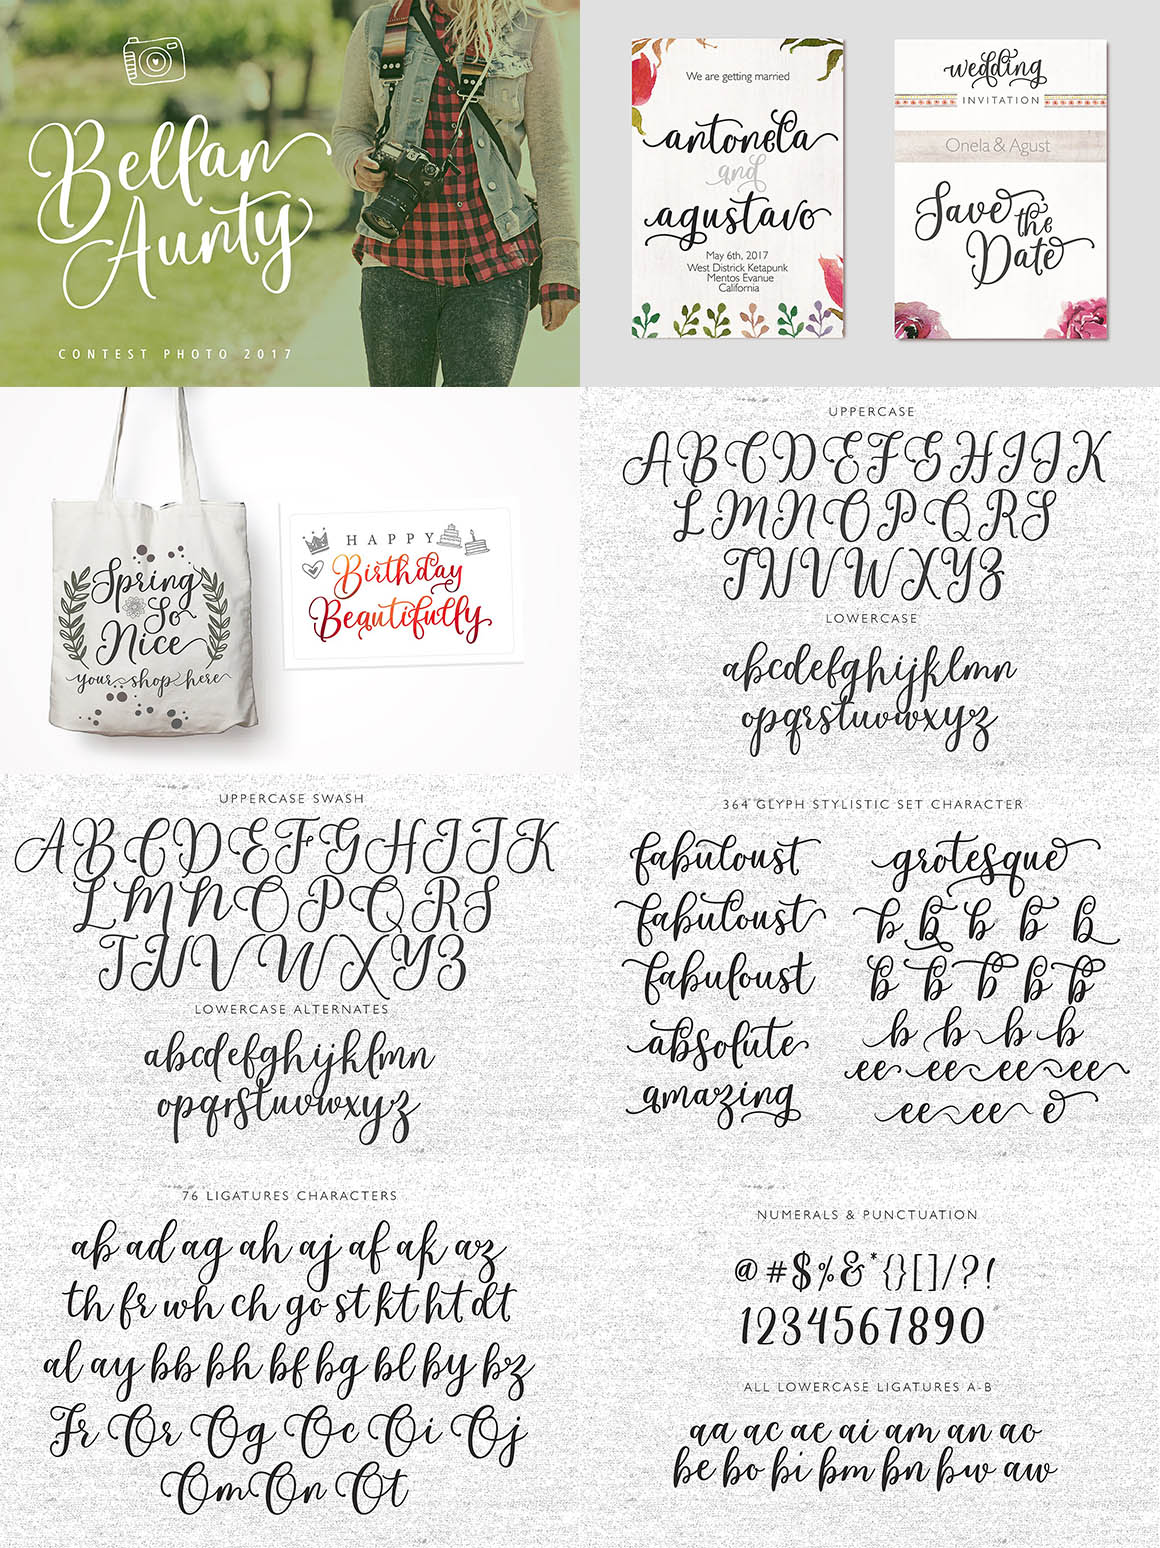 Bellan
Aunty
CONTEST PHOTO 2017
We are getting married
antonela
and
agustavo
May 6th, 2017
West Districk Ketapunk
Mentos Evanue
California
wedding
INVITATION
Onela & Agust
Save the
Date
Spring
So
Nice
your shop here
HAPPY
Birthday
Beautifully
UPPERCASE
ABCDEFGHIJK
LMNOPQRS
TUVWXYZ
LOWERCASE
abcdefghijklmn
opqrstuvwxyz
UPPERCASE SWASH
ABCDEFGHIJK
LMNOPQRS
TUVWXYZ
LOWERCASE ALTERNATES
abcdefghijklmn
opqrstuvwxyz
364 GLYPH STYLISTIC SET CHARACTER
fabuloust
fabuloust
fabuloust
absolute
amazing
grotesque
b b b b b
b b b b b
b b b b
ee ee ee ee
ee ee e
76 LIGATURES CHARACTERS
ab ad ag ah aj af ak az
th fr wh ch go st kt ht dt
al ay bb bh bf bg bl by bz
Fr Or Og Oc Oi Oj
Om On Ot
NUMERALS & PUNCTUATION
@#$%&*{}[]/?!
1234567890
ALL LOWERCASE LIGATURES A-B
aa ac ae ai am an ao
be bo bi bm bn bw aw